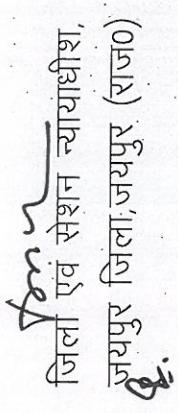 जिला एवं सेशन न्यायाधीश,
जयपुर जिला,जयपुर (राज0)